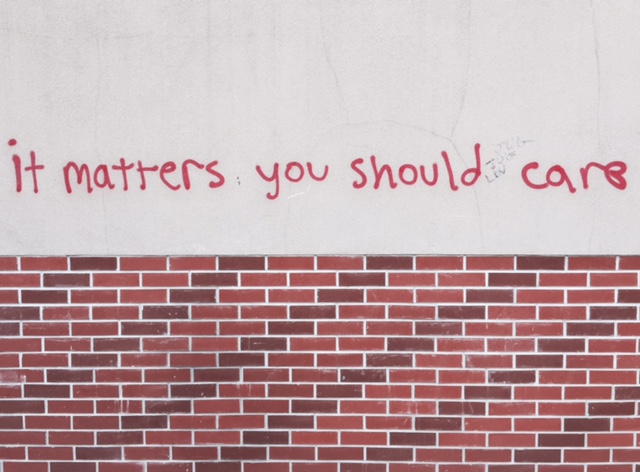 it matters you should care